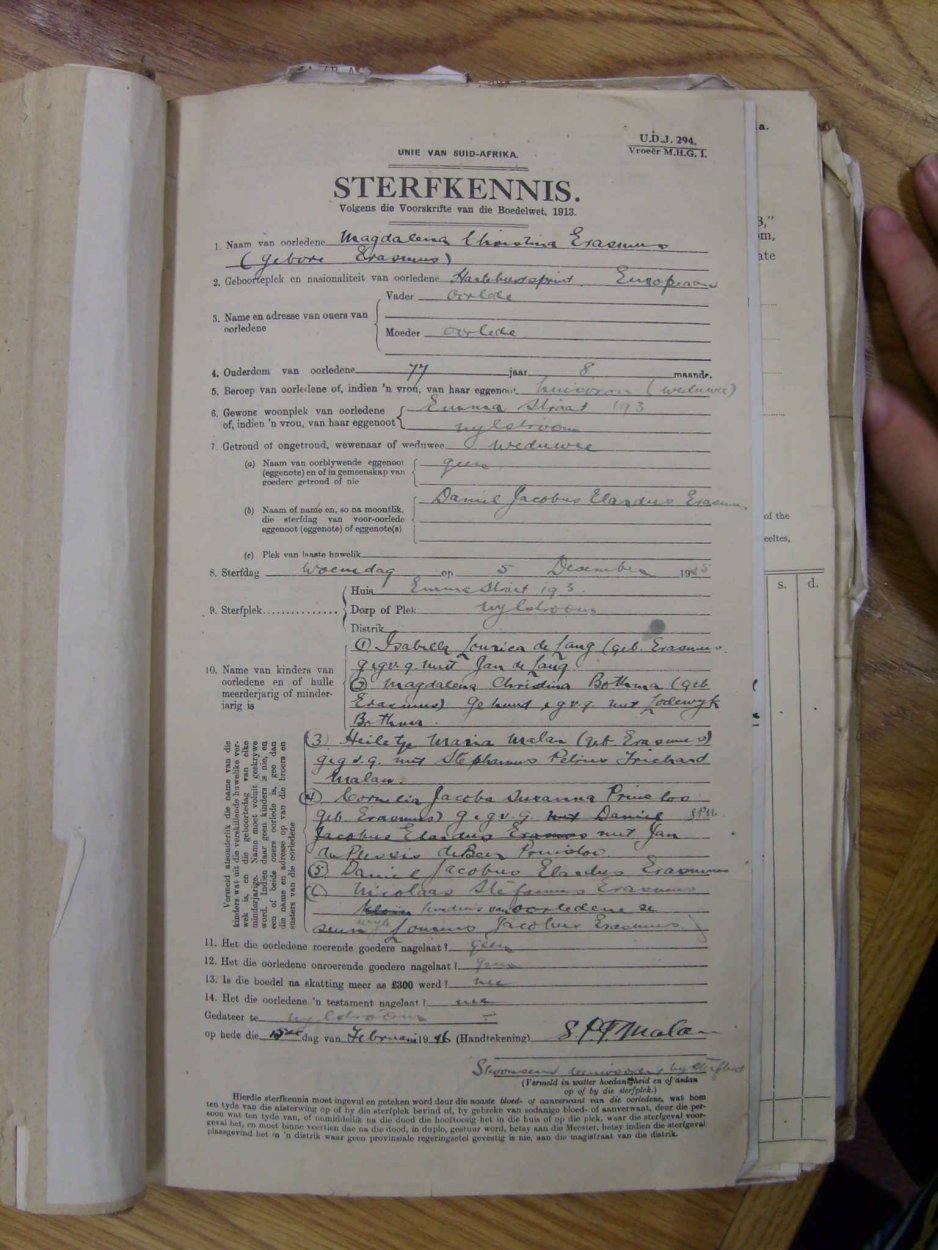 U.D.J. 294.
Vroeër M.H.G. 1.
UNIE VAN SUID-AFRIKA.
STERFKENNIS.
Volgens die Voorskrifte van die Boedelwet, 1913.
1. Naam van oorledene Magdalena Christina Erasmus
(gebore Erasmus)
2. Geboorteplek en nasionaliteit van oorledene Hartebeestspruit. Europeaan
3. Name en adresse van ouers van oorledene
Vader oorlede
Moeder oorlede
4. Ouderdom van oorledene 77 jaar 8 maande.
5. Beroep van oorledene of, indien 'n vrou, van haar eggenoot huisvrou (weduwee)
6. Gewone woonplek van oorledene of, indien 'n vrou, van haar eggenoot
Emma Straat 193
Nylstroom
7. Getroud of ongetroud, wewenaar of weduwee weduwee
(a) Naam van oorblywende eggenoot (eggenote) en of in gemeenskap van goedere getroud of nie
geen
(b) Naam of name en, so na moontlik, die sterfdag van voor-oorlede eggenoot (eggenote) of eggenote(s)
Daniel Jacobus Elardus Erasmus
(c) Plek van laaste huwelik
8. Sterfdag Woensdag op 5 Desember 1945
9. Sterfplek
Huis Emma Straat 193.
Dorp of Plek Nylstroom
Distrik
10. Name van kinders van oorledene en of hulle meerderjarig of minderjarig is
(1) Isabella Lourica de Lang (geb. Erasmus
g.e.g.v.g. met Jan de Lang.
(2) Magdalena Christina Bothma (geb
Erasmus) getroud g.v.g met Lodewyk
Bothma.
(3) Heiletje Maria Malan (geb Erasmus)
g.e.g.v.g. met Stephanus Petrus Trichard
Malan
(4) Cornelia Jacoba Susanna Prinsloo
geb Erasmus) g.e.g.v.g. met Daniel
Jacobus Elardus Erasmus met Jan
du Plessis de Beer Prinsloo.
(5) Daniel Jacobus Elardus Erasmus
Nicolaas Stefanus Erasmus
kinders van oorledene se
seun Lourens Jacobus Erasmus
Vermeld afsonderlik die name van die
kinders wat uit die verskillende huwelike verwek
is, en die geboortedag van elke
minderjarige. Name moet voluit geskrywe
word. Indien daar geen kinders is nie, en
een of beide ouers oorlede is, gee dan
die name en adresse op van die broers en
susters van die oorledene
11. Het die oorledene roerende goedere nagelaat? geen
12. Het die oorledene onroerende goedere nagelaat? geen
13. Is die boedel na skatting meer as £300 werd? nee
14. Het die oorledene 'n testament nagelaat? nee
Gedateer te Nylstroom
op hede die dag van Februarie 1946 (Handtekening) S.P.T. Malan
Skoonseun teenwoordig by sterfbed
(Vermeld in watter hoedanigheid en of aldan
op of by die sterfplek.)
Hierdie sterfkennis moet ingevul en geteken word deur die naaste bloed- of aanverwant van die oorledene, wat hom
ten tyde van die afsterwing op of by die sterfplek bevind of, by gebreke van sodanige bloed- of aanverwant, deur die persoon
wat ten tyde van, of onmiddellik na die dood die hooftoesig het in die huis of op die plek, waar die sterfgeval voorgeval
het, en moet binne veertien dae na die dood, in duplo, gestuur word, hetsy aan die Meester, hetsy indien die sterfgeval
plaasgevind het in 'n distrik waar geen provinsiale regeringsetel gevestig is nie, aan die magistraat van die distrik.
of the
s. d.